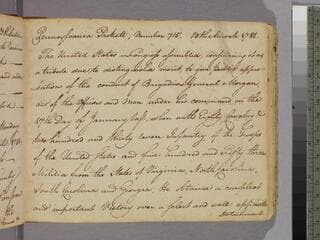 Pennsylvania Packett, Number 715. 10th March 1781.
The United States in Congress assembled, considering it as
a tribute due to distinguished merit, to give public appro-
bation of the conduct of Brigadier General Morgan,
and of the Officers and Men under his command on the
17th Day of January last, when with Eighty Cavalry &
two hundred and thirty seven Infantry of the Troops
of the United States and five hundred and fifty three
Militia from the States of Virginia, North Carolina,
South Carolina and Georgia. He obtained a compleat
and important Victory over a select and well appointed
Detachment